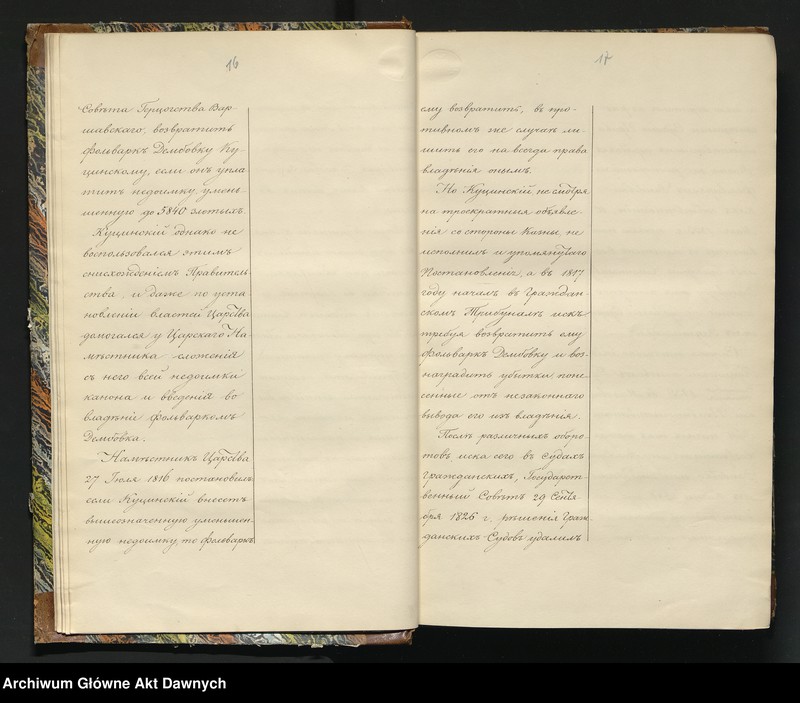 16
Совѣта Герцогства Вар-
шавскаго, возвратить
фольваркъ Дембовку Ку-
цинскому, если онъ упла
титъ недоимку, умень-
шенную до 5840 злотыхъ.
Куцинскій однако не
воспользовался этимъ
снисхожденіемъ Правитель
ства, и даже по уста
новленіи властей Царства
домогался у Царскаго На-
мѣстника сложенія
съ него всей недоимки
канона и введенія во
владѣніе фольваркомъ
Дембовка.
Намѣстникъ Царства
27 Іюля 1816 постановилъ
если Куцинскій внесетъ
вышеозначенную уменьшен-
ную недоимку, то фольваркъ
17
ему возвратить, въ про-
тивномъ же случаѣ ли-
шить его на всегда права
владѣнія онымъ.
Но Куцинскій, не смотря
на троекратныя объявле-
нія со стороны Казны, не
исполнилъ и упомянутаго
Постановленія, а въ 1817
году началъ въ Граждан-
скомъ Трибуналѣ искъ
требуя возвратить ему
фольваркъ Дембовку и воз-
наградить убытки поне-
сенные отъ незаконнаго
вывода его изъ владѣнія.
Послѣ различныхъ оборо-
товъ иска сего въ судахъ
Гражданскихъ, Государст-
венный Совѣтъ 29 Сентя
бря 1826 г. рѣшенія Граж-
данскихъ Судовъ удалилъ
Archiwum Główne Akt Dawnych